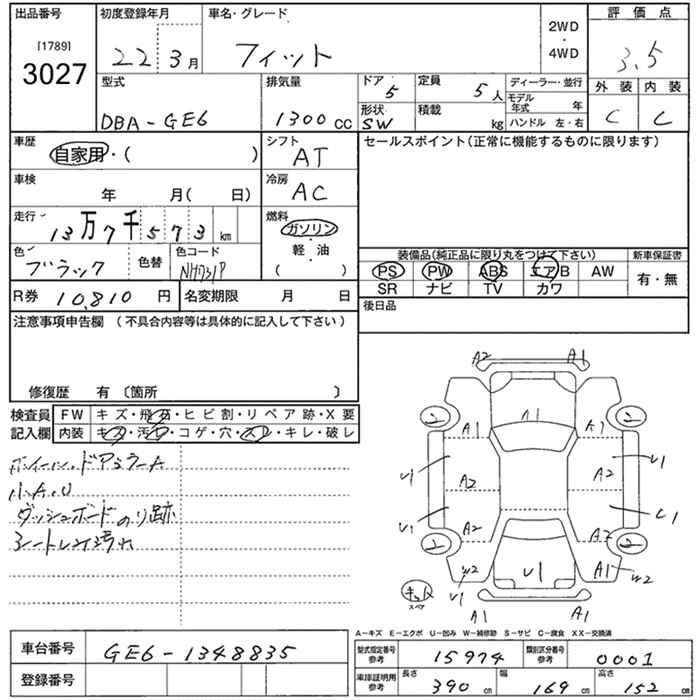 出品番号 初度登録年月 車名・グレード 評価点
[1789] 3027 22 3月 フィット 2WD・4WD 3.5
型式 排気量 ドア 5 定員 5人 ディーラー・並行 外装 内装
DBA-GE6 1300cc 形状 SW 積載 kg モデル年式 年 ハンドル 左・右 C C
車歴 自家用・( ) シフト AT セールスポイント(正常に機能するものに限ります)
車検 年 月( 日) 冷房 AC
走行 13万7千573km 燃料 ガソリン・軽・油 ( )
色 ブラック 色替 色コード NH731P 装備品(純正品に限り丸をつけて下さい) 新車保証書
PS PW ABS エアB AW 有・無
SR ナビ TV カワ
R券 10,810円 名変期限 月 日 後日品
注意事項申告欄 (不具合内容等は具体的に記入して下さい)
修復歴 有 〔箇所 〕
検査員 FW キズ・飛石・ヒビ割・リペア跡・X要
記入欄 内装 キズ・汚れ・コゲ・穴・スレ・キレ・破レ
ホイール、ドアミラーA
小A.U
ダッシュボードのり跡
シートレス汚れ
A2 A1
A1 A1 A1
U1 A2 A2 U1
U1 A2 A2 U1
W2 U1 U1 A1 W2
スペア
A1 A1
A−キズ E−エクボ U−凹み W−補修跡 S−サビ C−腐食 XX−交換済
車台番号 GE6-1348835 型式指定番号 参考 15974 類別区分番号 参考 0001
登録番号 車庫証明用 参考 長さ 390cm 幅 169cm 高さ 152cm